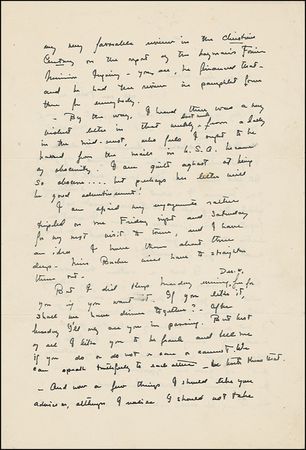 my very favorable review in the Christian
Century on the report of the Layman's Foreign
Missions Inquiry - you see, he financed that -
and he had the review in pamphlet form
then for everybody.
- By the way, I heard there was a very
violent letter in that last week's weekly - from a lady
in the mid-west, who feels I ought to be
barred from the mails in U.S.A. because
of obscenity. I am quite aghast at being
so obscene.... but perhaps her letter will
be good advertisement!
I am afraid my engagements rather
tripled on one Friday night and Saturday
for my next visit to town, and I have
an idea I have them about three
deep - Miss Barker will have to straighten
them out.
But I did keep Monday evening, Dec. 4, for
you if you want it. If you like it,
shall we have dinner together? - After
Monday I'll say see you in passing. But best
of all I like you to be frank and tell me
if you do or do not or can or cannot. We
can speak truthfully to each other - we both know that.
- And now a few things I should like your
advice on, although I realize I should not take